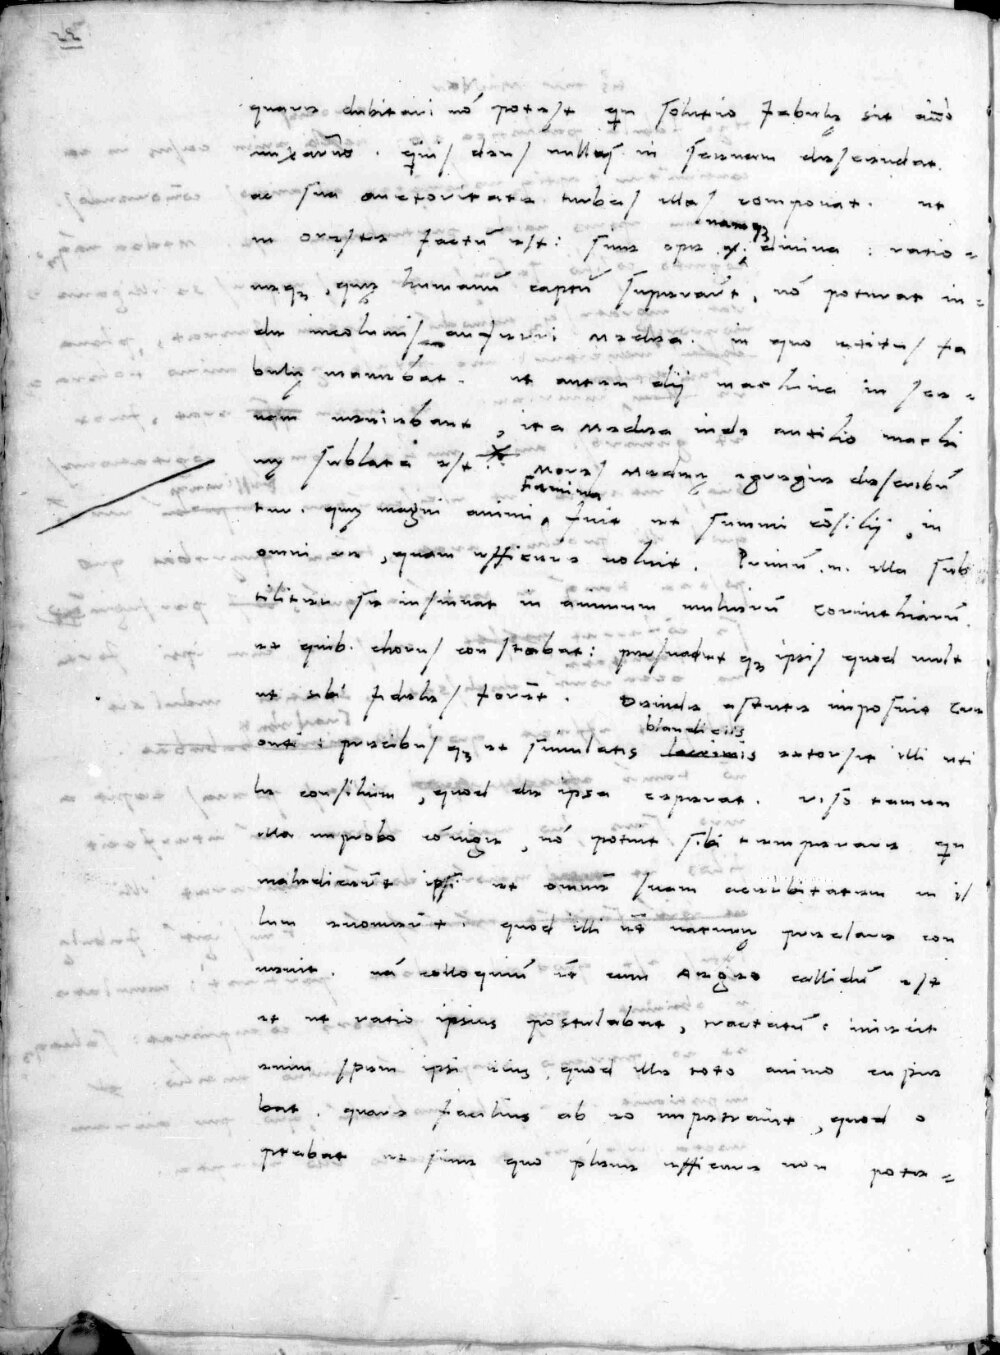 quare dubitari nõ potest qn solutio fabulę sit aĩo
quis deus nullus in scenam descendat.
ac sua auctoritate turbas illas componat. ut
in oreste factũ est: sine ope namq; diuina : ratio=
neq;, quę humanũ captũ superarẽt, nõ poterat in=
de incolumis auferri Medea. in quo uitiũ fa
bulę manebat. ut autem dij machina in sce=
nam ueniebant, ita Medea inde auxilio machi
nę sublata est. Mores Medeę egregie describũ
tur. quę magni animi femina fuit et summi cõsilij, in
omni re, quam efficere uoluit. Primũ .n. illa sub
tiliter se insinuat in animum mulierũ corinthiarũ.
ex quib. chorus constabat: persuadet q; ipsis quod uult
ut sibi fideles forẽt. Deinde astute imposuit Cre
onti: precibus q; et simulatis blandiciis lacrimis extorsit illi uti
le consilium, quod de ipsa ceperat. Viso tamen
illa improbo cõiuge, nõ potuit sibi temperare qn
malediceret ipsi et omnem suam acerbitatem in il
lum euomeret. quod illi ut naturę preclare con
uenit. nã colloquiũ et cum Aegeo callidũ est
et ut ratio ipsius postulabat, tractatũ: iniecit
enim spem ipsi eius, quod ille toto animo cupie
bat. quare facilius ab eo impetrauit, quod o
ptabat et sine quo plane efficere non pote=